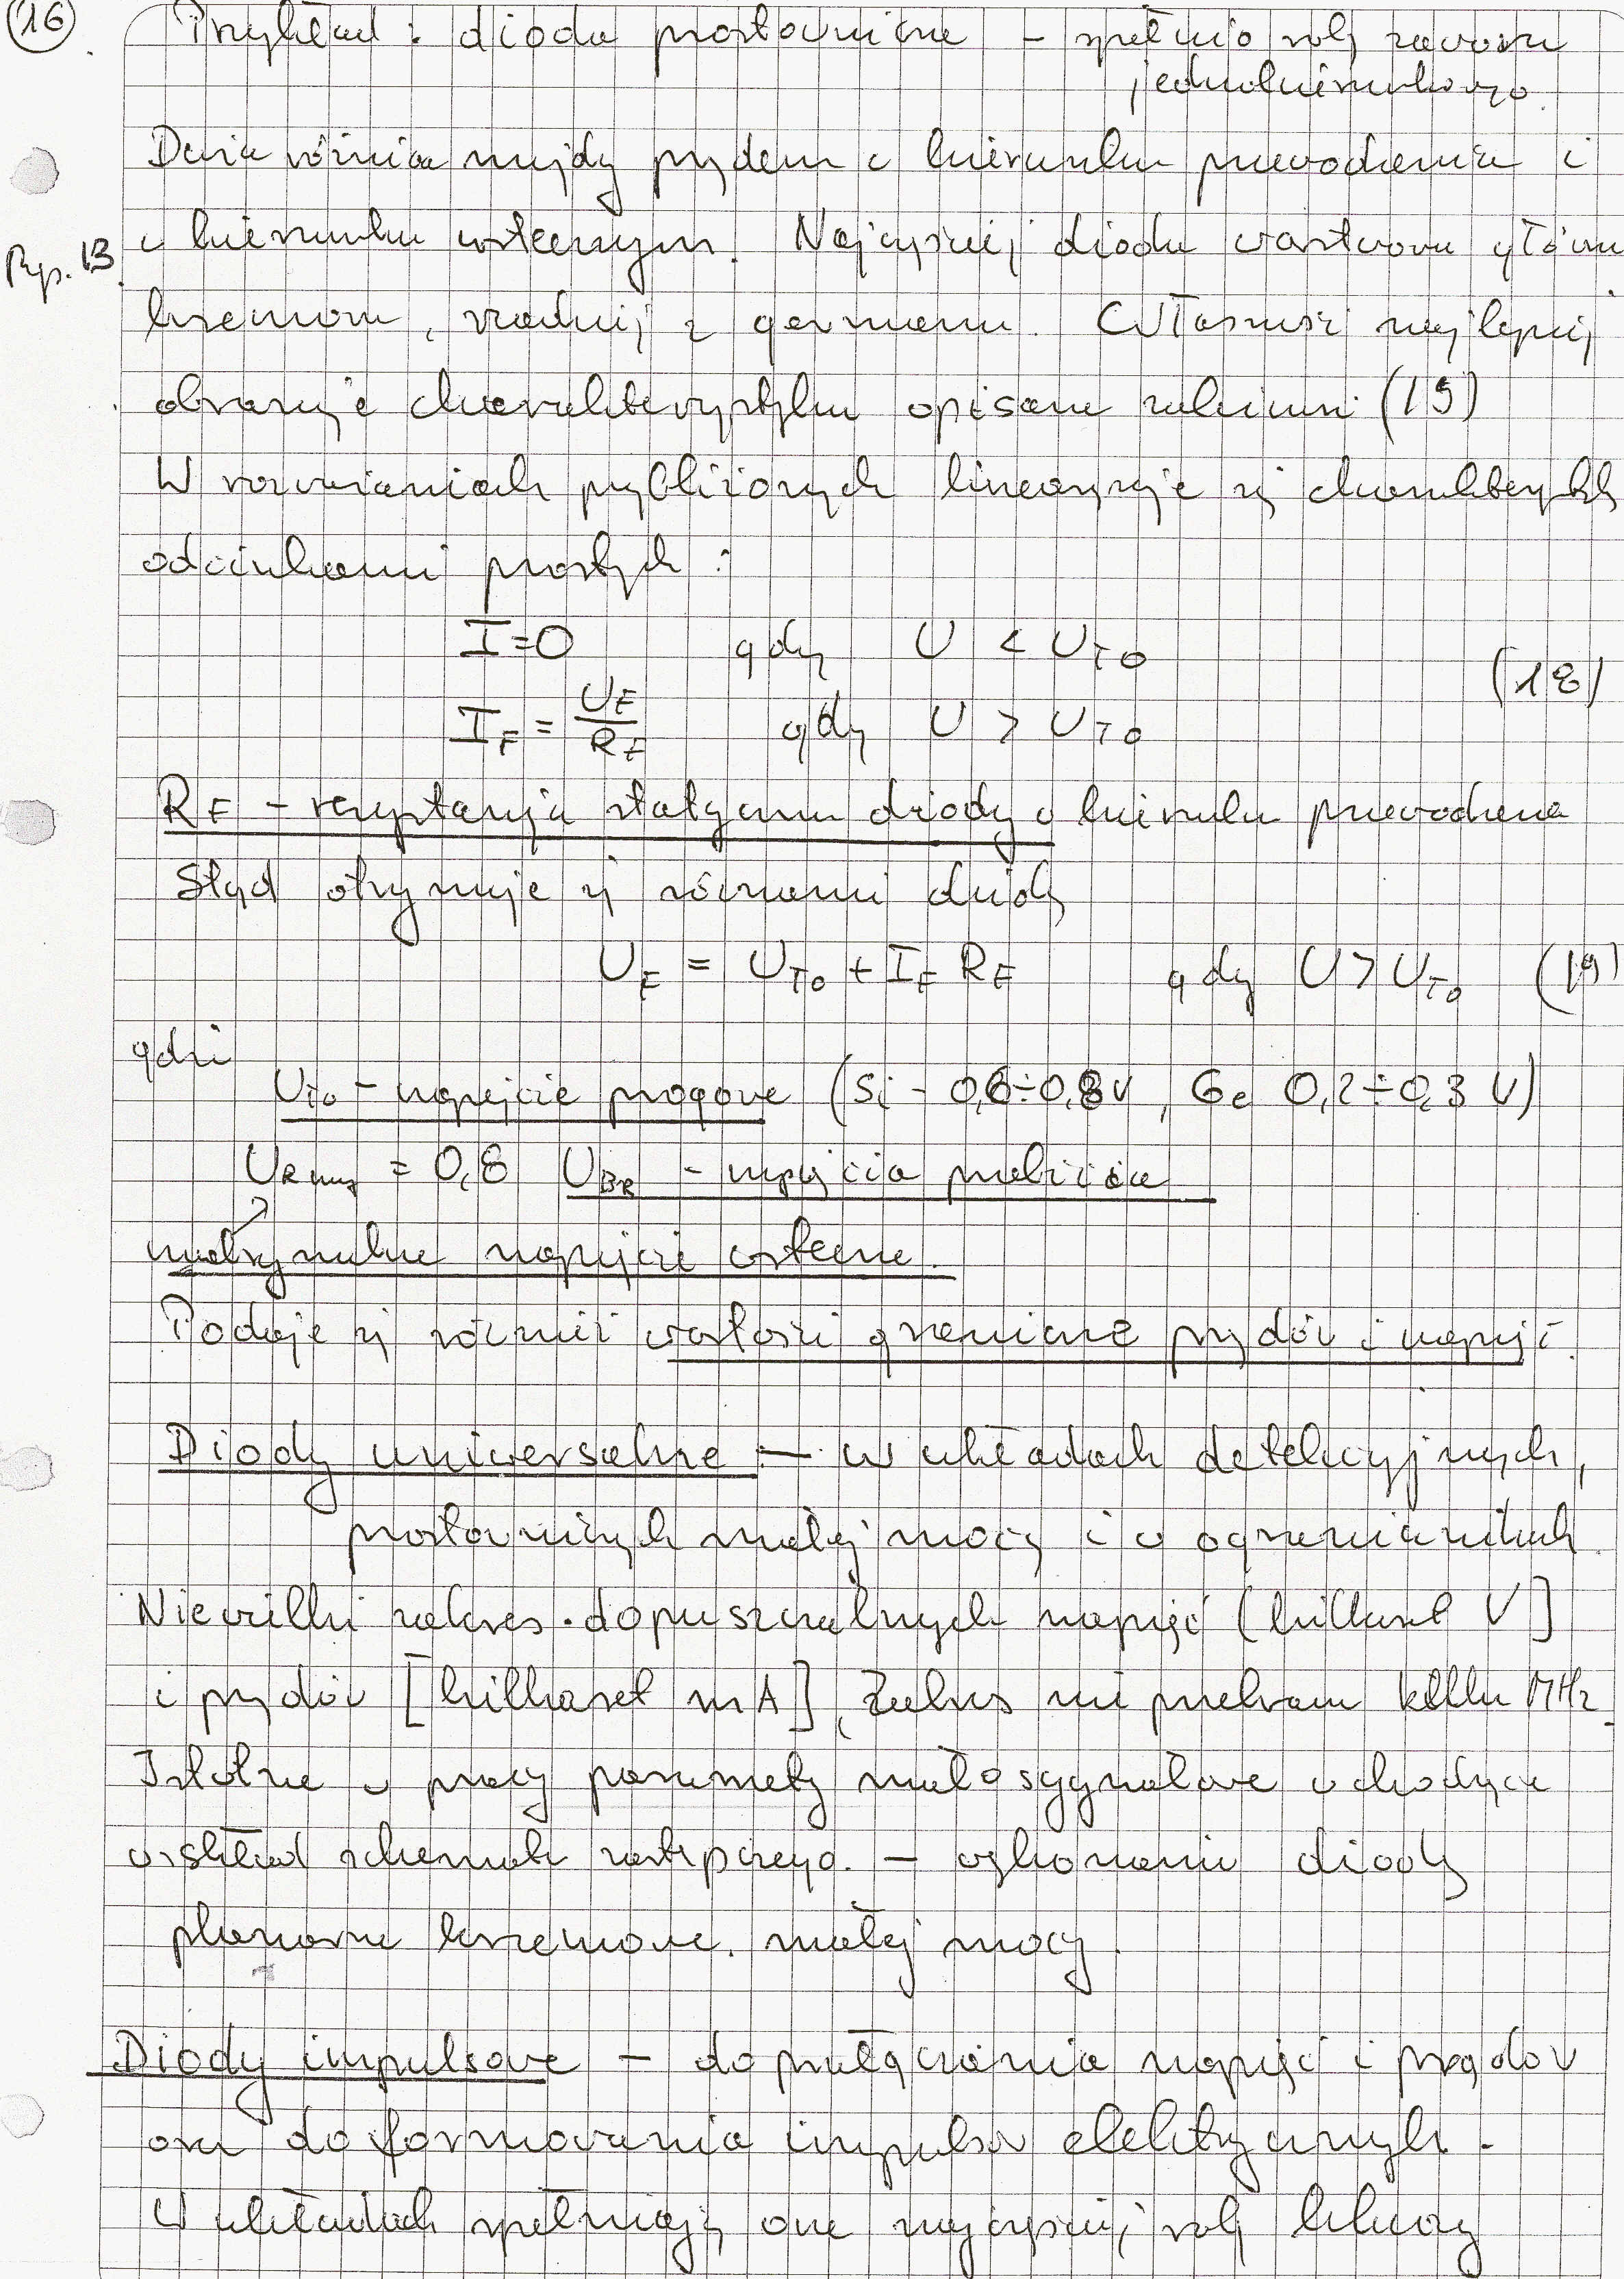 16
Przykład : dioda prostownicza – spełnia rolę zaworu
jednokierunkowego.
Duża różnica między prądem w kierunku przewodzenia i
Rys. 13
w kierunku wstecznym. Najczęściej dioda warstwowa głównie
krzemowa, rzadziej z germanu. Własności najlepiej
obrazuje charakterystyka opisana zależności (15)
W rozważaniach przybliżonych linearyzuje się charakterystykę
odcinkami prostych :
I=0 gdy U < U_T0
(18)
I_F = U_F/R_F gdy U > U_T0
R_F – rezystancja statyczna diody w kierunku przewodzenia
Stąd otrzymuje się równanie diody
U_F = U_T0 + I_F R_F gdy U > U_T0 (19)
gdzie
U_T0 – napięcie progowe (Si – 0,6÷0,8V, Ge 0,2÷0,3 V)
U_Rmax = 0,8 U_BR – napięcia przebicia
maksymalne napięcie wsteczne.
Podaje się również wartości graniczne prądów i napięć.
Diody uniwersalne – w układach detekcyjnych,
prostowniczych małej mocy i w ogranicznikach.
Niewielki zakres dopuszczalnych napięć (kilkaset V]
i prądów [kilkaset mA], Zakres nie przekracza kilku MHz.
Istotne w pracy parametry małosygnałowe wchodzące
w skład schematu zastępczego. – wykonanie diody
planarne krzemowe. małej mocy.
Diody impulsowe – do przełączania napięć i prądów
oraz do formowania impulsów elektrycznych.
W układach spełniają one najczęściej rolę kluczy